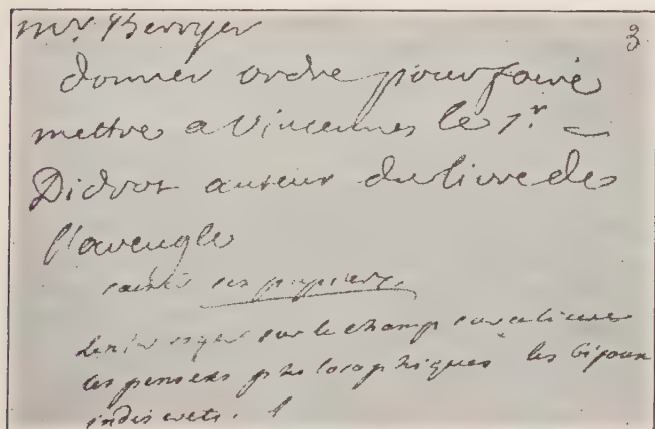 mr. Berryer 3
donner ordre pour faire
mettre a Vincennes le sr. –
Didrot auteur du livre de
l'aveugle
ses papiers.
sur le champ sur ce livre
les pensees philosophiques les bijoux
indiscrets.